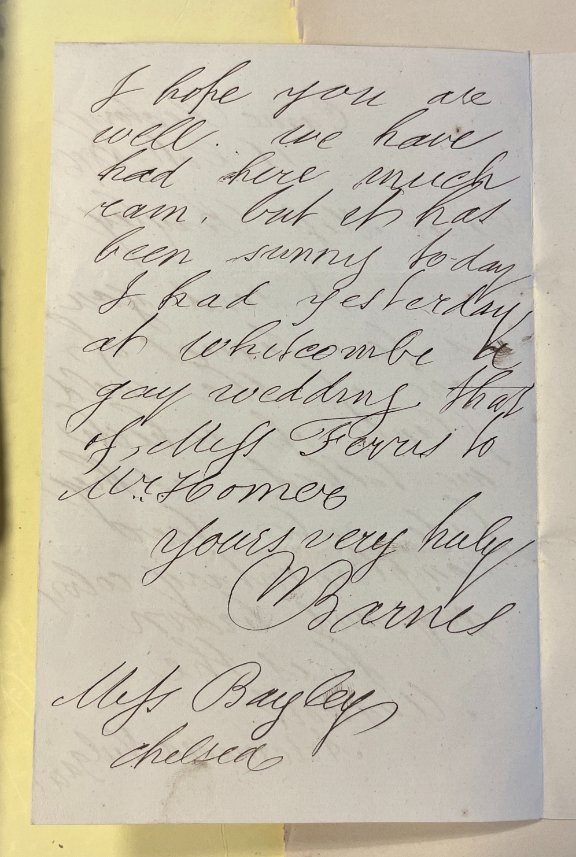 I hope you are
well. we have
had here much
rain, but it has
been sunny to-day
I had yesterday
at Whitcombe a
gay wedding that
of Miss Ferris to
Mr. Homer
yours very truly
W Barnes
Miss Bayley
Chelsea